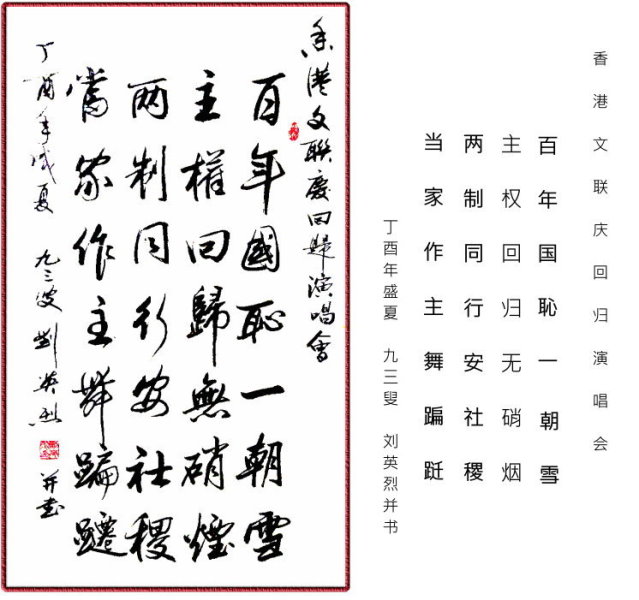 香港文聯慶回歸演唱會
百年國恥一朝雪
主權回歸無硝煙
两制同行安社稷
當家作主舞蹁躚
丁酉年盛夏 九三叟 劉英烈 并書
香港文联庆回归演唱会
百年国恥一朝雪
主权回归无硝烟
两制同行安社稷
当家作主舞蹁跹
丁酉年盛夏 九三叟 刘英烈并书